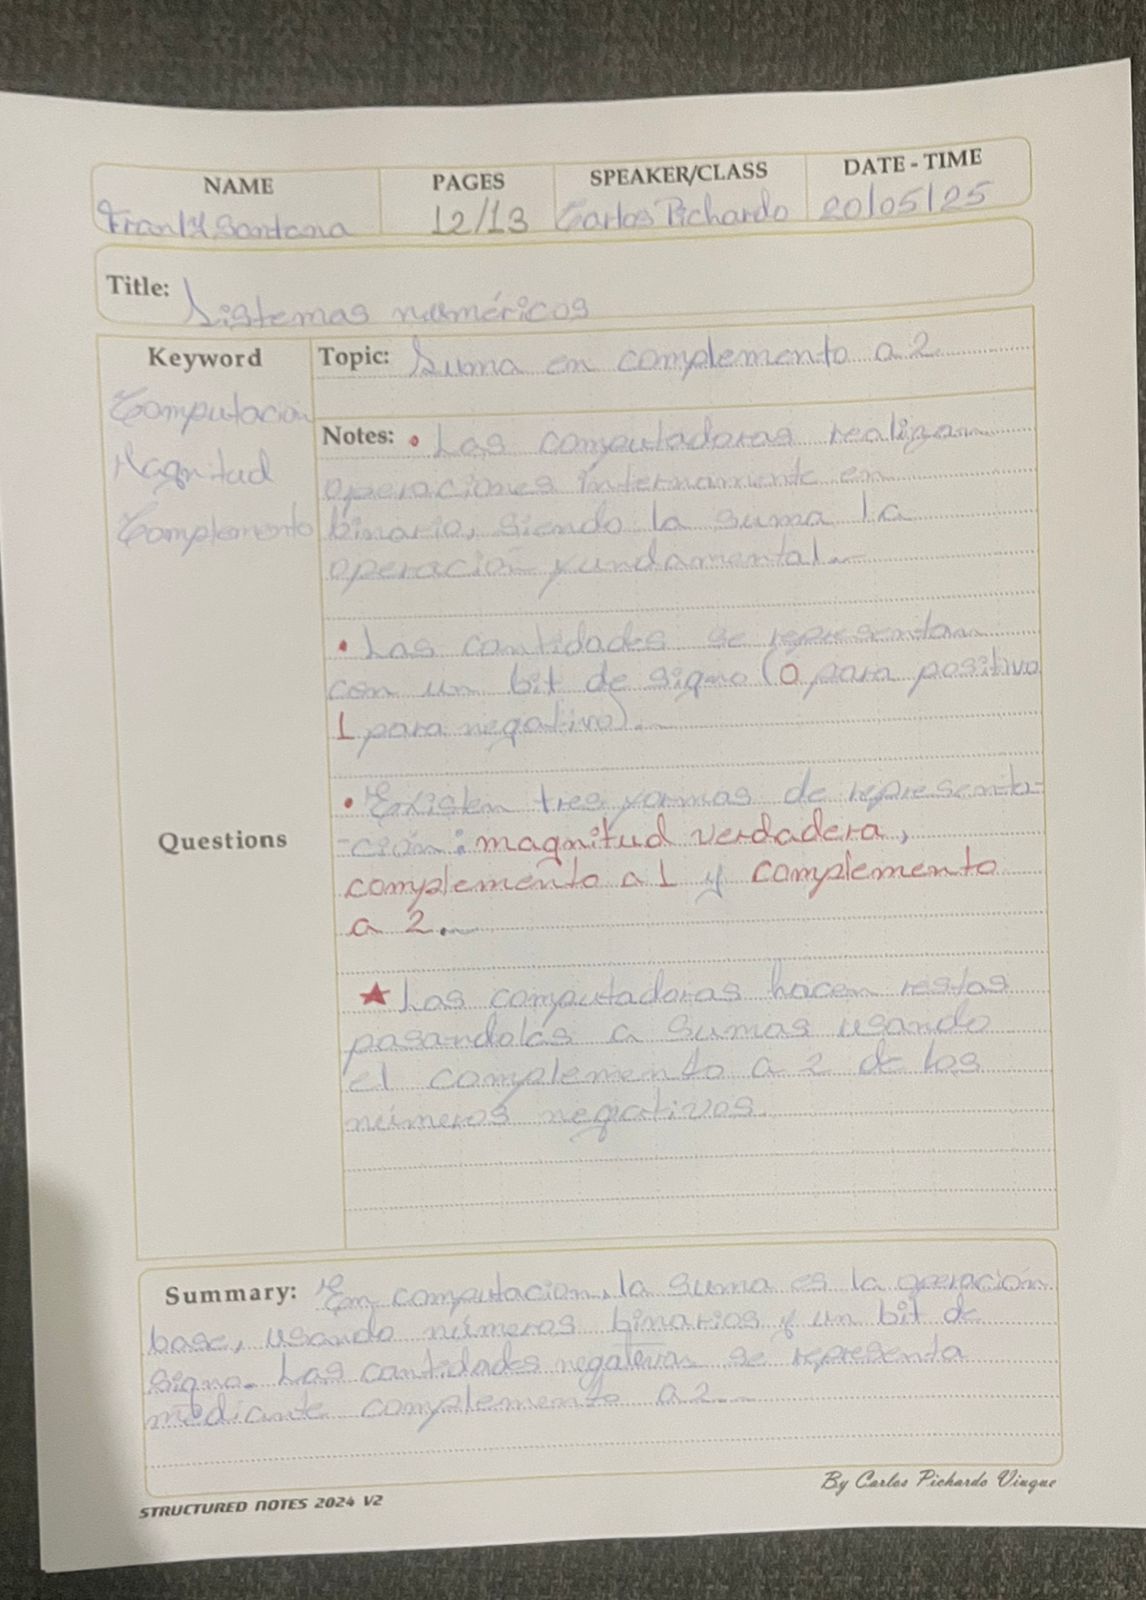 NAME PAGES SPEAKER/CLASS DATE - TIME
Frankl Santana 12/13 Carlos Pichardo 20/05/25
Title: Sistemas numéricos
Keyword
Computacion
Magnitud
Complemento
Topic: Suma en complemento a 2
Notes: • Las computadoras realizan
operaciones internamente en
binario, siendo la suma la
operación fundamental.
• Las cantidades se representan
con un bit de signo (0 para positivo
1 para negativo).
• Existen tres formas de representa-
-ción: magnitud verdadera,
complemento a 1 y complemento
a 2.
★ Las computadoras hacen restas
pasandolas a sumas usando
el complemento a 2 de los
números negativos.
Questions
Summary: En computacion, la suma es la operación
base, usando números binarios y un bit de
signo. Las cantidades negativas se representa
mediante complemento a 2.
By Carlos Pichardo Viuque
STRUCTURED NOTES 2024 V2